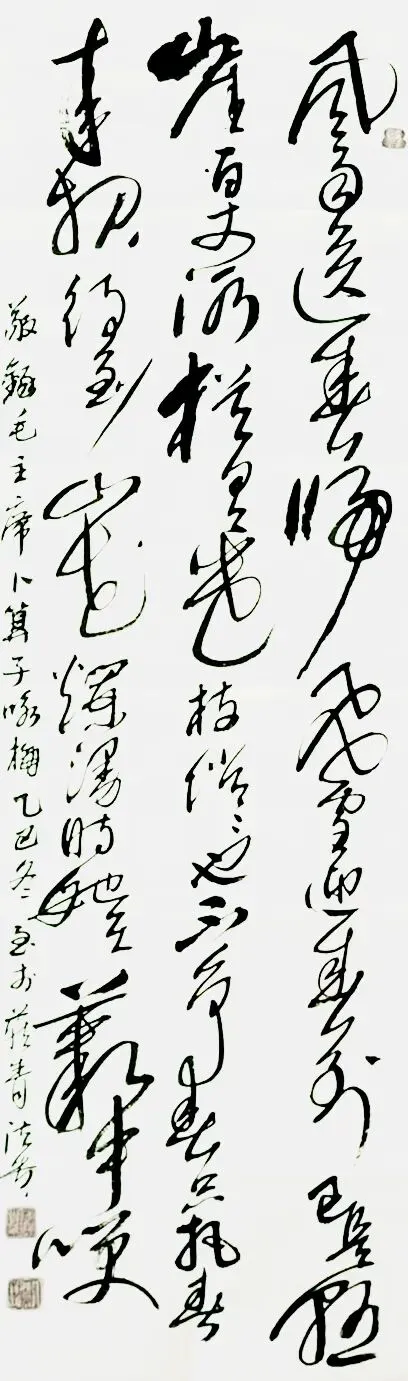 風雨送春歸飛雪迎春到已是懸
崖百丈冰猶有花枝俏〻也不爭春只把春
來報待到山花爛漫時她在叢中笑
敬錄毛主席卜算子咏梅乙巳冬至於